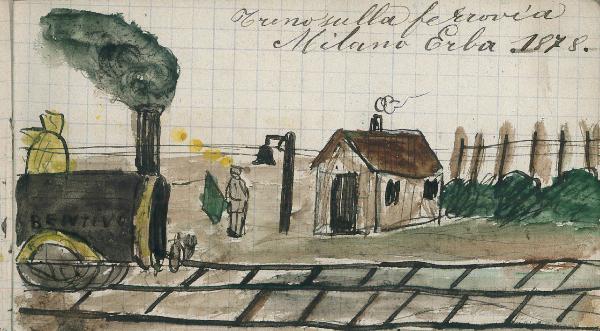 Treno sulla ferrovia
Milano Erba 1878.
BENTIVO